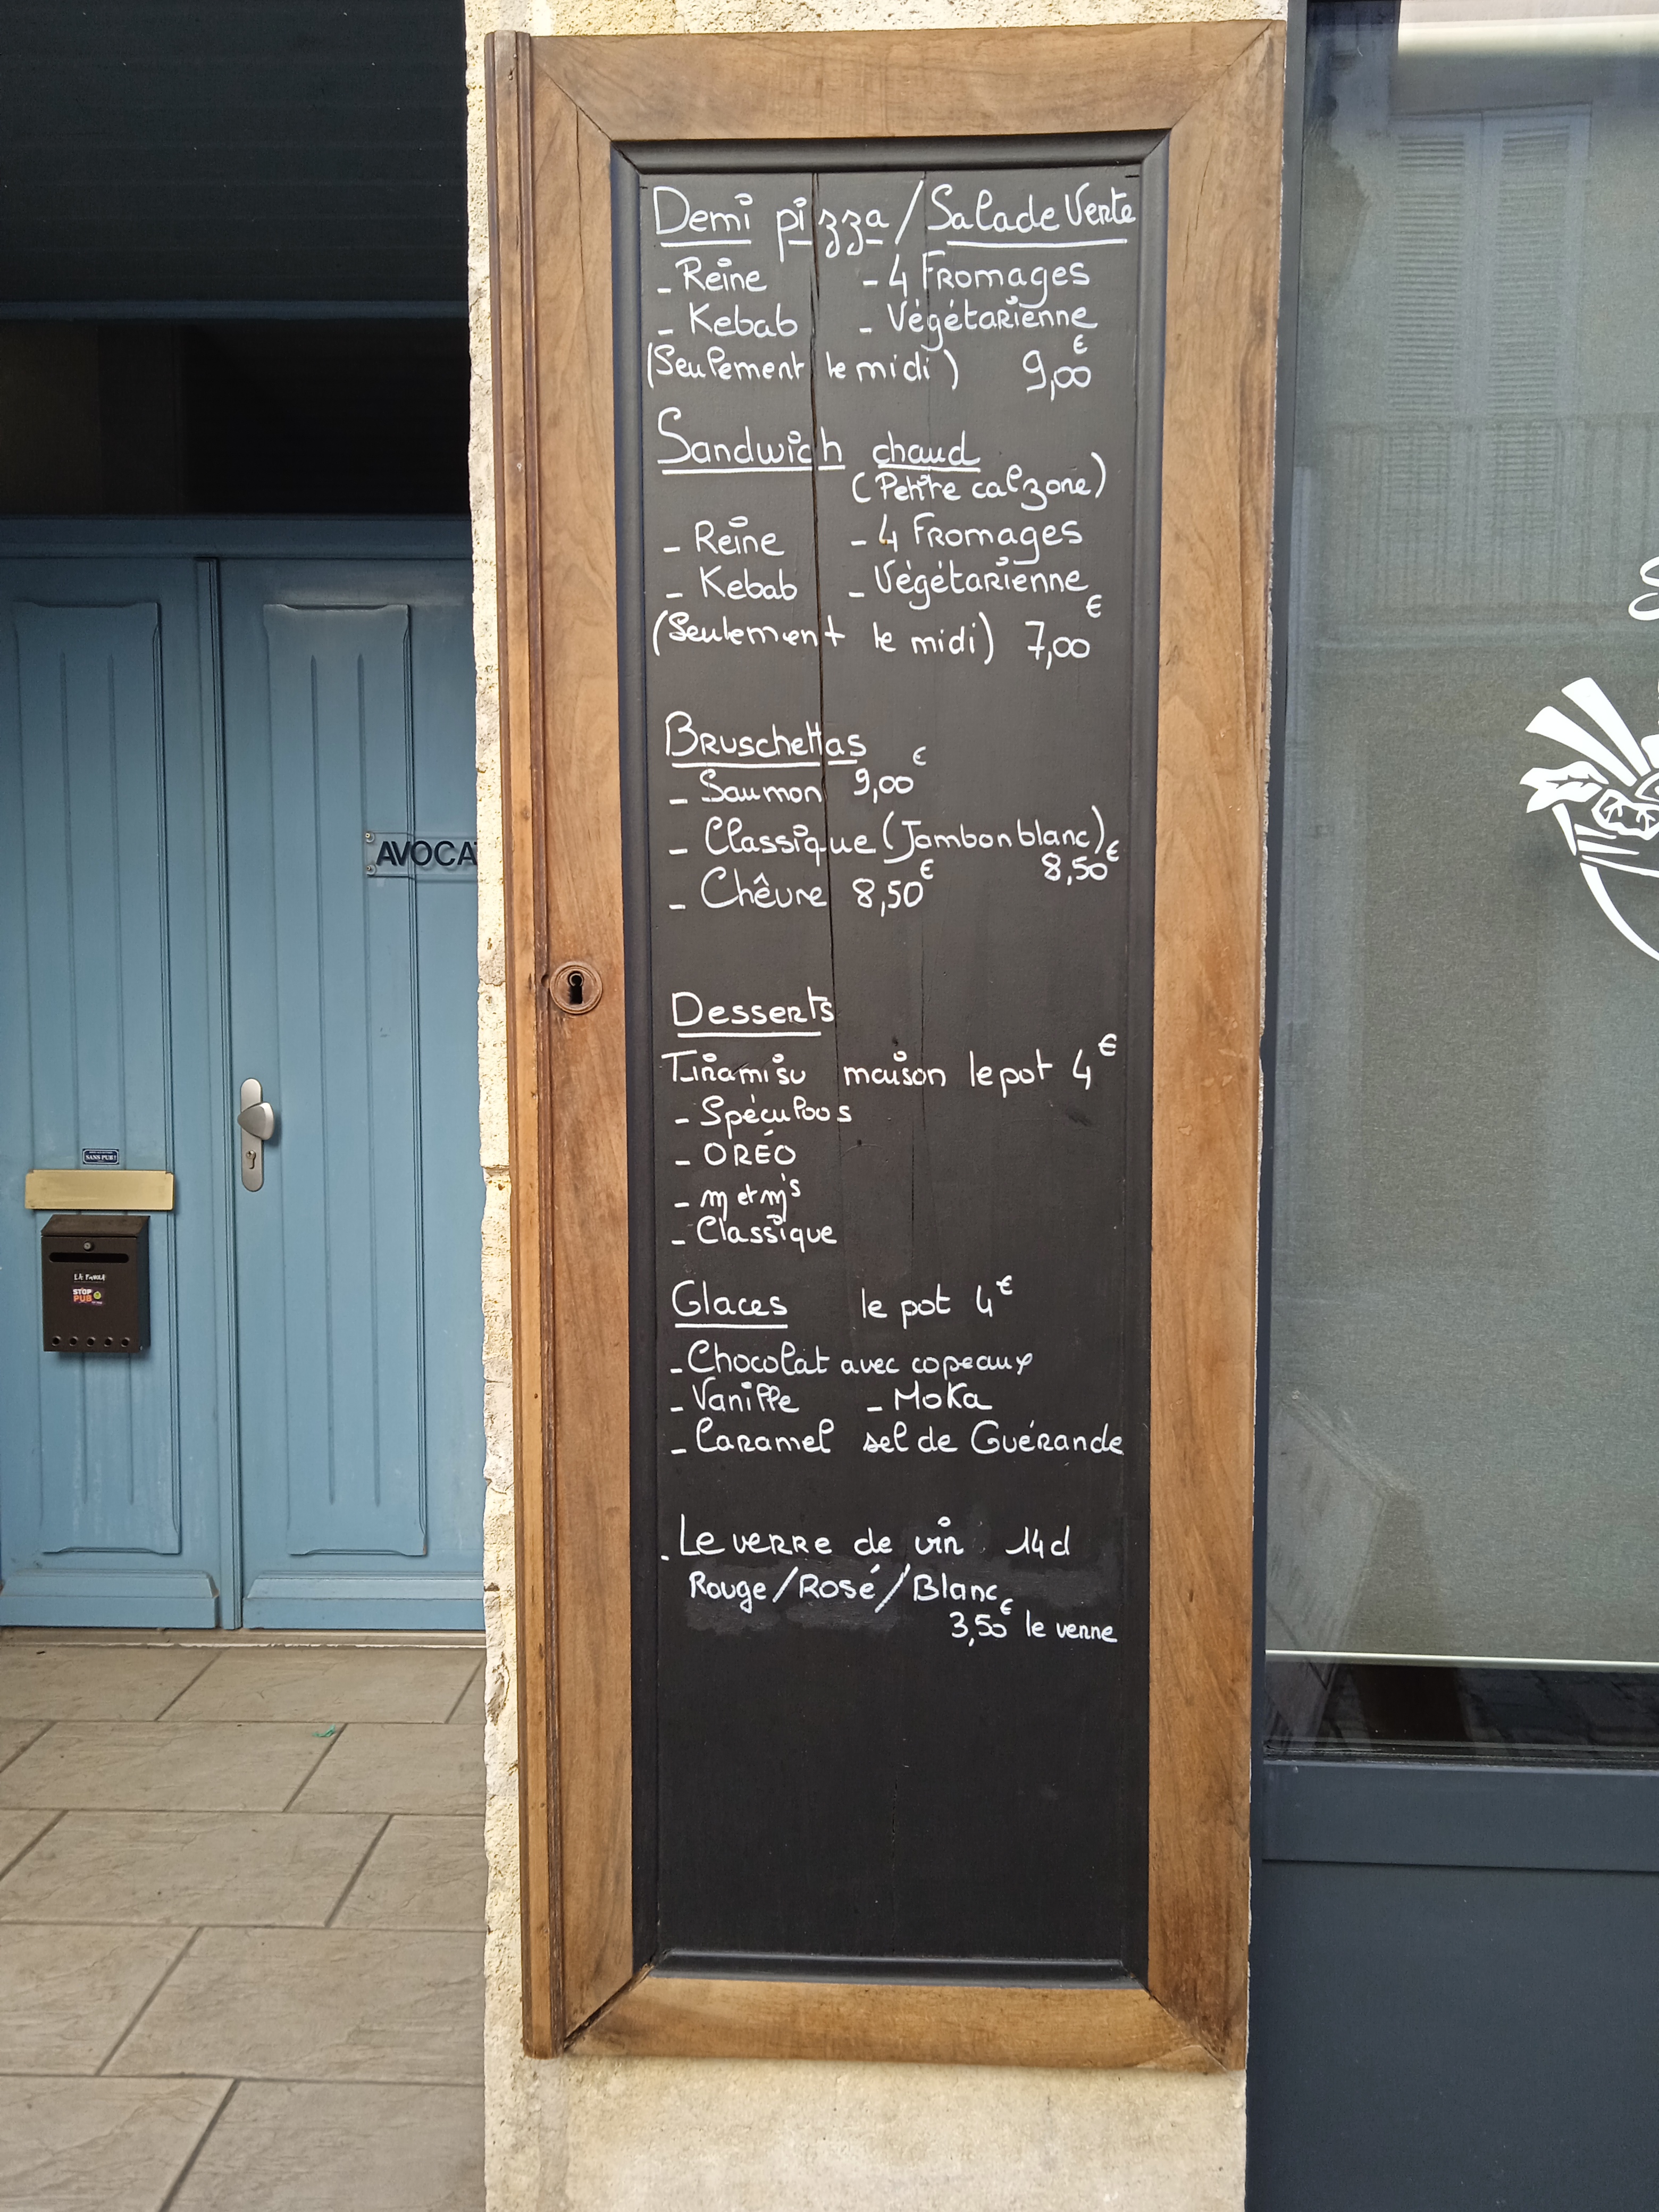 Demi pizza / Salade Verte
- Reine - 4 Fromages
- Kebab - Végétarienne
(Seulement le midi) 9,00€
Sandwich chaud
(Petite calzone)
- Reine - 4 Fromages
- Kebab - Végétarienne
(Seulement le midi) 7,00€
Bruschettas
- Saumon 9,00€
- Classique (Jambon blanc)
8,50€
- Chêvre 8,50€
Desserts
Tiramisu maison le pot 4€
- Spéculoos
- ORÉO
- m et m's
- Classique
Glaces le pot 4€
- Chocolat avec copeaux
- Vanille - Moka
- Caramel sel de Guérande
. Le verre de vin 14cl
Rouge / Rosé / Blanc
3,50€ le verre
AVOCA
SANS PUB!
STOP
PUB